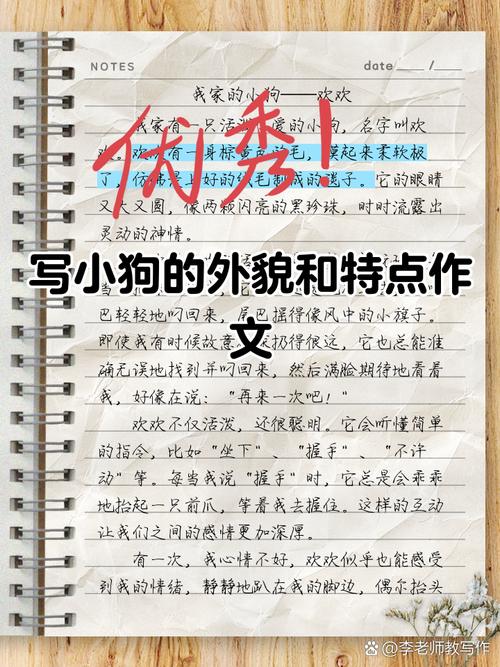 NOTES
date ___ / ___
我家的小狗——欢欢
优秀!
我家有一只活泼 爱的小狗，名字叫欢
欢。欢 有一身棕黄色的毛， 摸起来柔软极
了，仿佛是上好的绒毛制成的毯子。它的眼睛
又大又圆，像两颗闪亮的黑珍珠，时时流露出
灵动的神情。
写小狗的外貌和特点作
文
巴轻轻地叼回来，尾巴摇得像风中的小旗子。
即使我有时候故意 扔得很远，它也总能准
确无误地找到并叼回来，然后满脸期待地看着
我，好像在说：“再来一次吧！”
欢欢不仅活泼，还很聪明。它会听懂简单
的指令，比如“坐下”、“握手”、“不许
动”等。每当我说“握手”时，它总是会乖乖
地抬起一只前爪，等着我去握住。这样的互动
让我们之间的感情更加深厚。
有一次，我心情不好，欢欢似乎也能感受
到我的情绪，静静地趴在我的脚边，偶尔抬头
李老师教写作